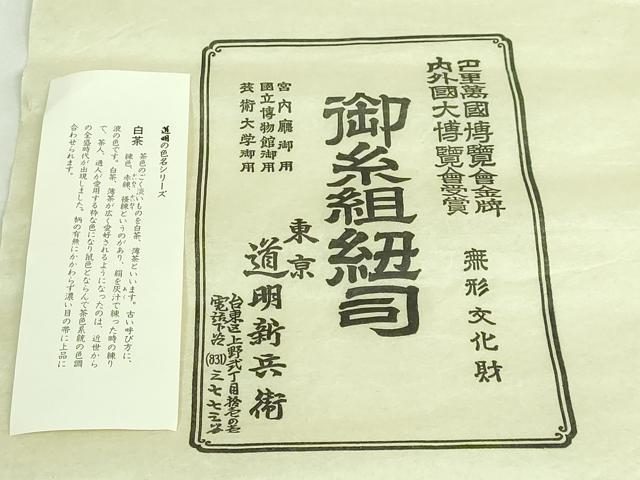 巴里萬國博覽會金牌
内外國大博覽會受賞
無形文化財
御糸組紐司
宮内廳御用
國立博物館御用
芸術大学御用
東京
道明新兵衛
台東区上野弐丁目拾壱の壱
電話下谷(831)三七七三番
道明の色名シリーズ
白茶
茶色のごく淡いものを白茶、薄茶といいます。古い呼び方に、
練色、赤練、檀練というのがあり、絹を灰汁で練った時の練り
液の色です。白茶、薄茶が広く愛好されるようになったのは、近世から
で、茶人、通人が愛用する粋な色になり鼠色とならんで茶色系統の色調
の全盛時代が出現しました。柄の有無にかかわらず濃い目の帯に上品に
合わせられます。